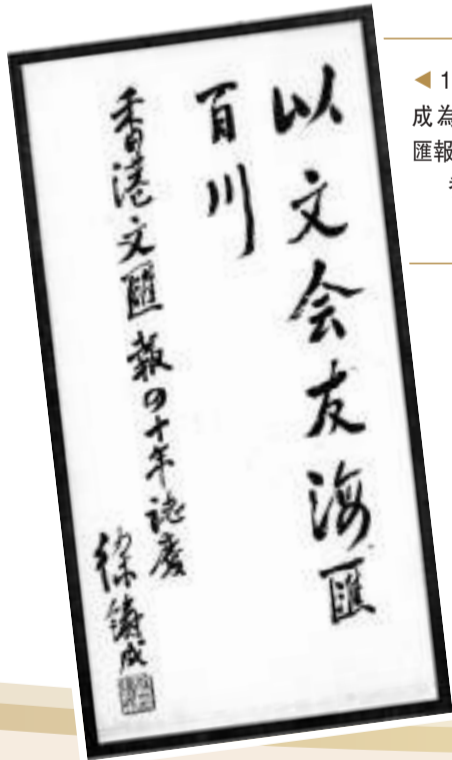 以文会友海匯
百川
香港文匯報四十年誌慶
徐鑄成
◀ 1
成為
匯報